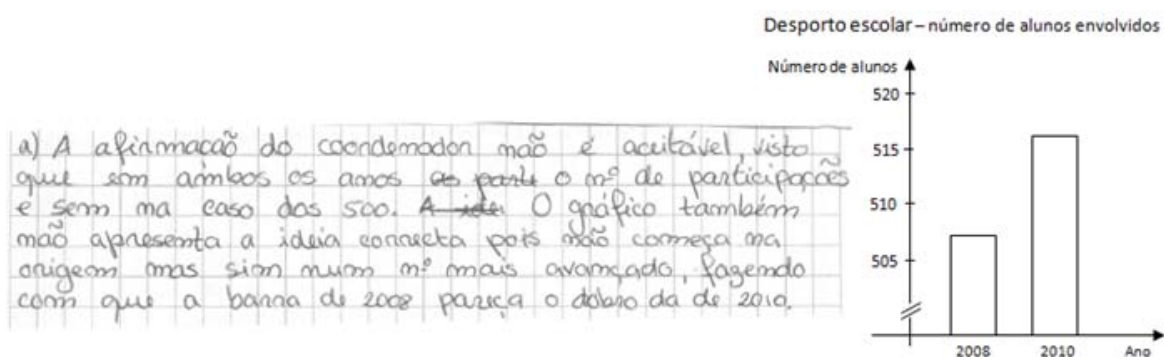 a) A afirmação do coordenador não é aceitável, visto
que em ambos os anos o nº de participações
e sem na casa dos 500. O gráfico também
não apresenta a ideia correcta pois não começa na
origem mas sim num nº mais avançado, fazendo
com que a barra de 2008 pareça o dobro da de 2010.
Desporto escolar – número de alunos envolvidos
Número de alunos
520
515
510
505
2008 2010 Ano